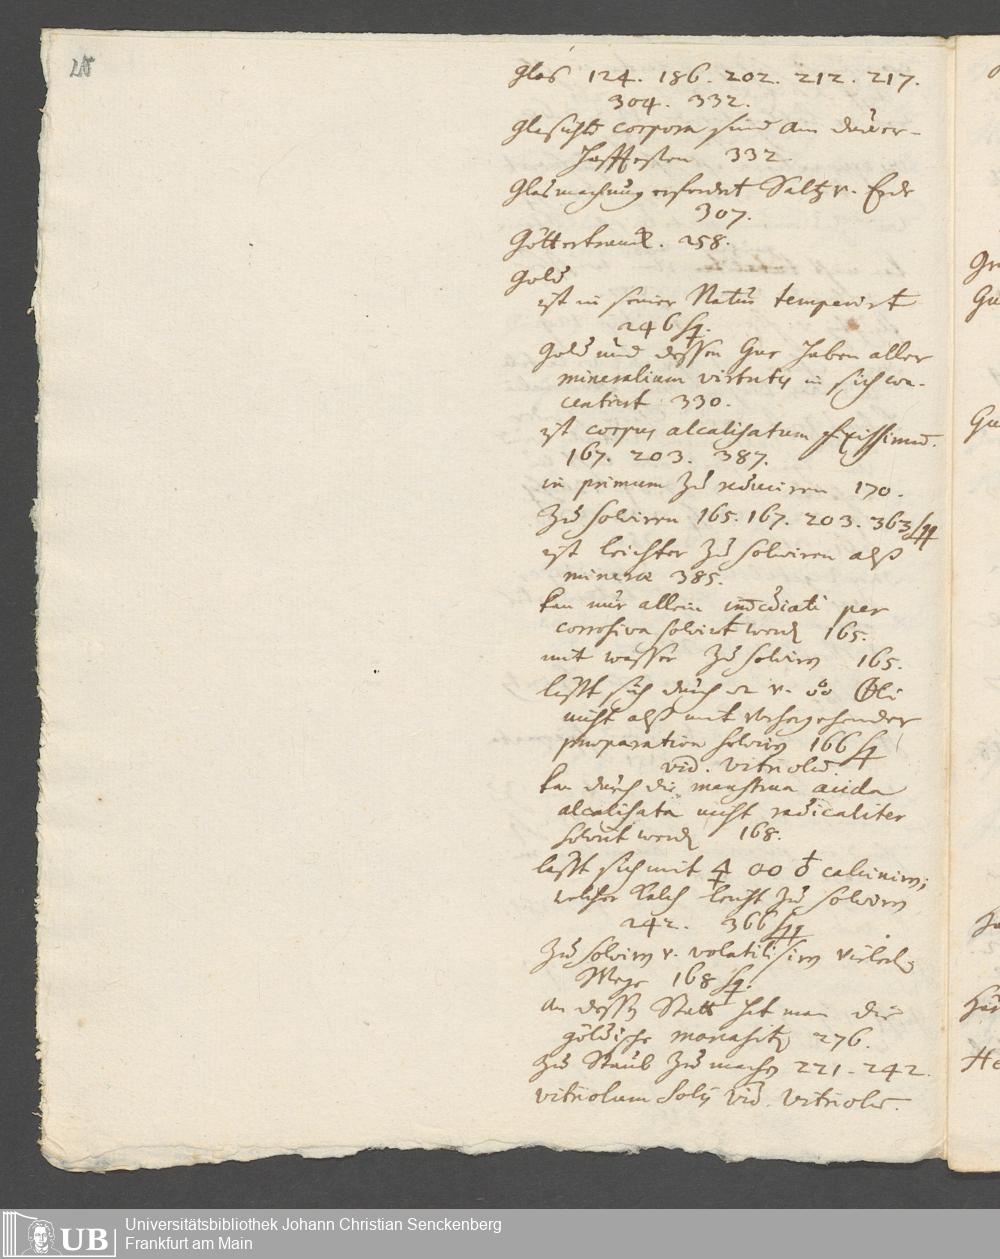 Glas 124. 186. 202. 212. 217.
304. 332.
Glasichte corpora sind am dauer-
hafftesten 332.
Glasmachung erfordert Saltz v. Erde
307.
Göttertranck. 258.
Gold
ist in seiner Natur temperirt
246 sq.
Gold und dessen Gur haben aller
mineralium virtutes in sich con-
centrirt 330.
ist corpus alcalisatum fixissimum.
167. 203. 387.
in primum zu reduciren 170.
zu solviren 165. 167. 203. 363 sqq
ist leichter zu solviren alß
minerae 385.
kan nur allein immediatè per
corrosiva solvirt werden 165.
mit wasser zu solviren 165.
läßt sich durch v.
nicht alß mit vorhergehender
praeparation solviren 166 sq
vid. vitriolum.
kan durch die menstrua acida
alcalisata nicht radicaliter
solvirt werden 168.
läßt sich mit calciniren;
welcher Kalch leicht zu solviren
242. 366 sqq
zu solviren v. volatilisiren
Wege 168 sq.
an dessen Statt hat man die
göldische 276.
zu Staub zu machen 221. 242.
vitriolum Solis vid. vitriolum.
Gr
Gu
Gu
Ha
Här
He
Universitätsbibliothek Johann Christian Senckenberg
Frankfurt am Main
UB